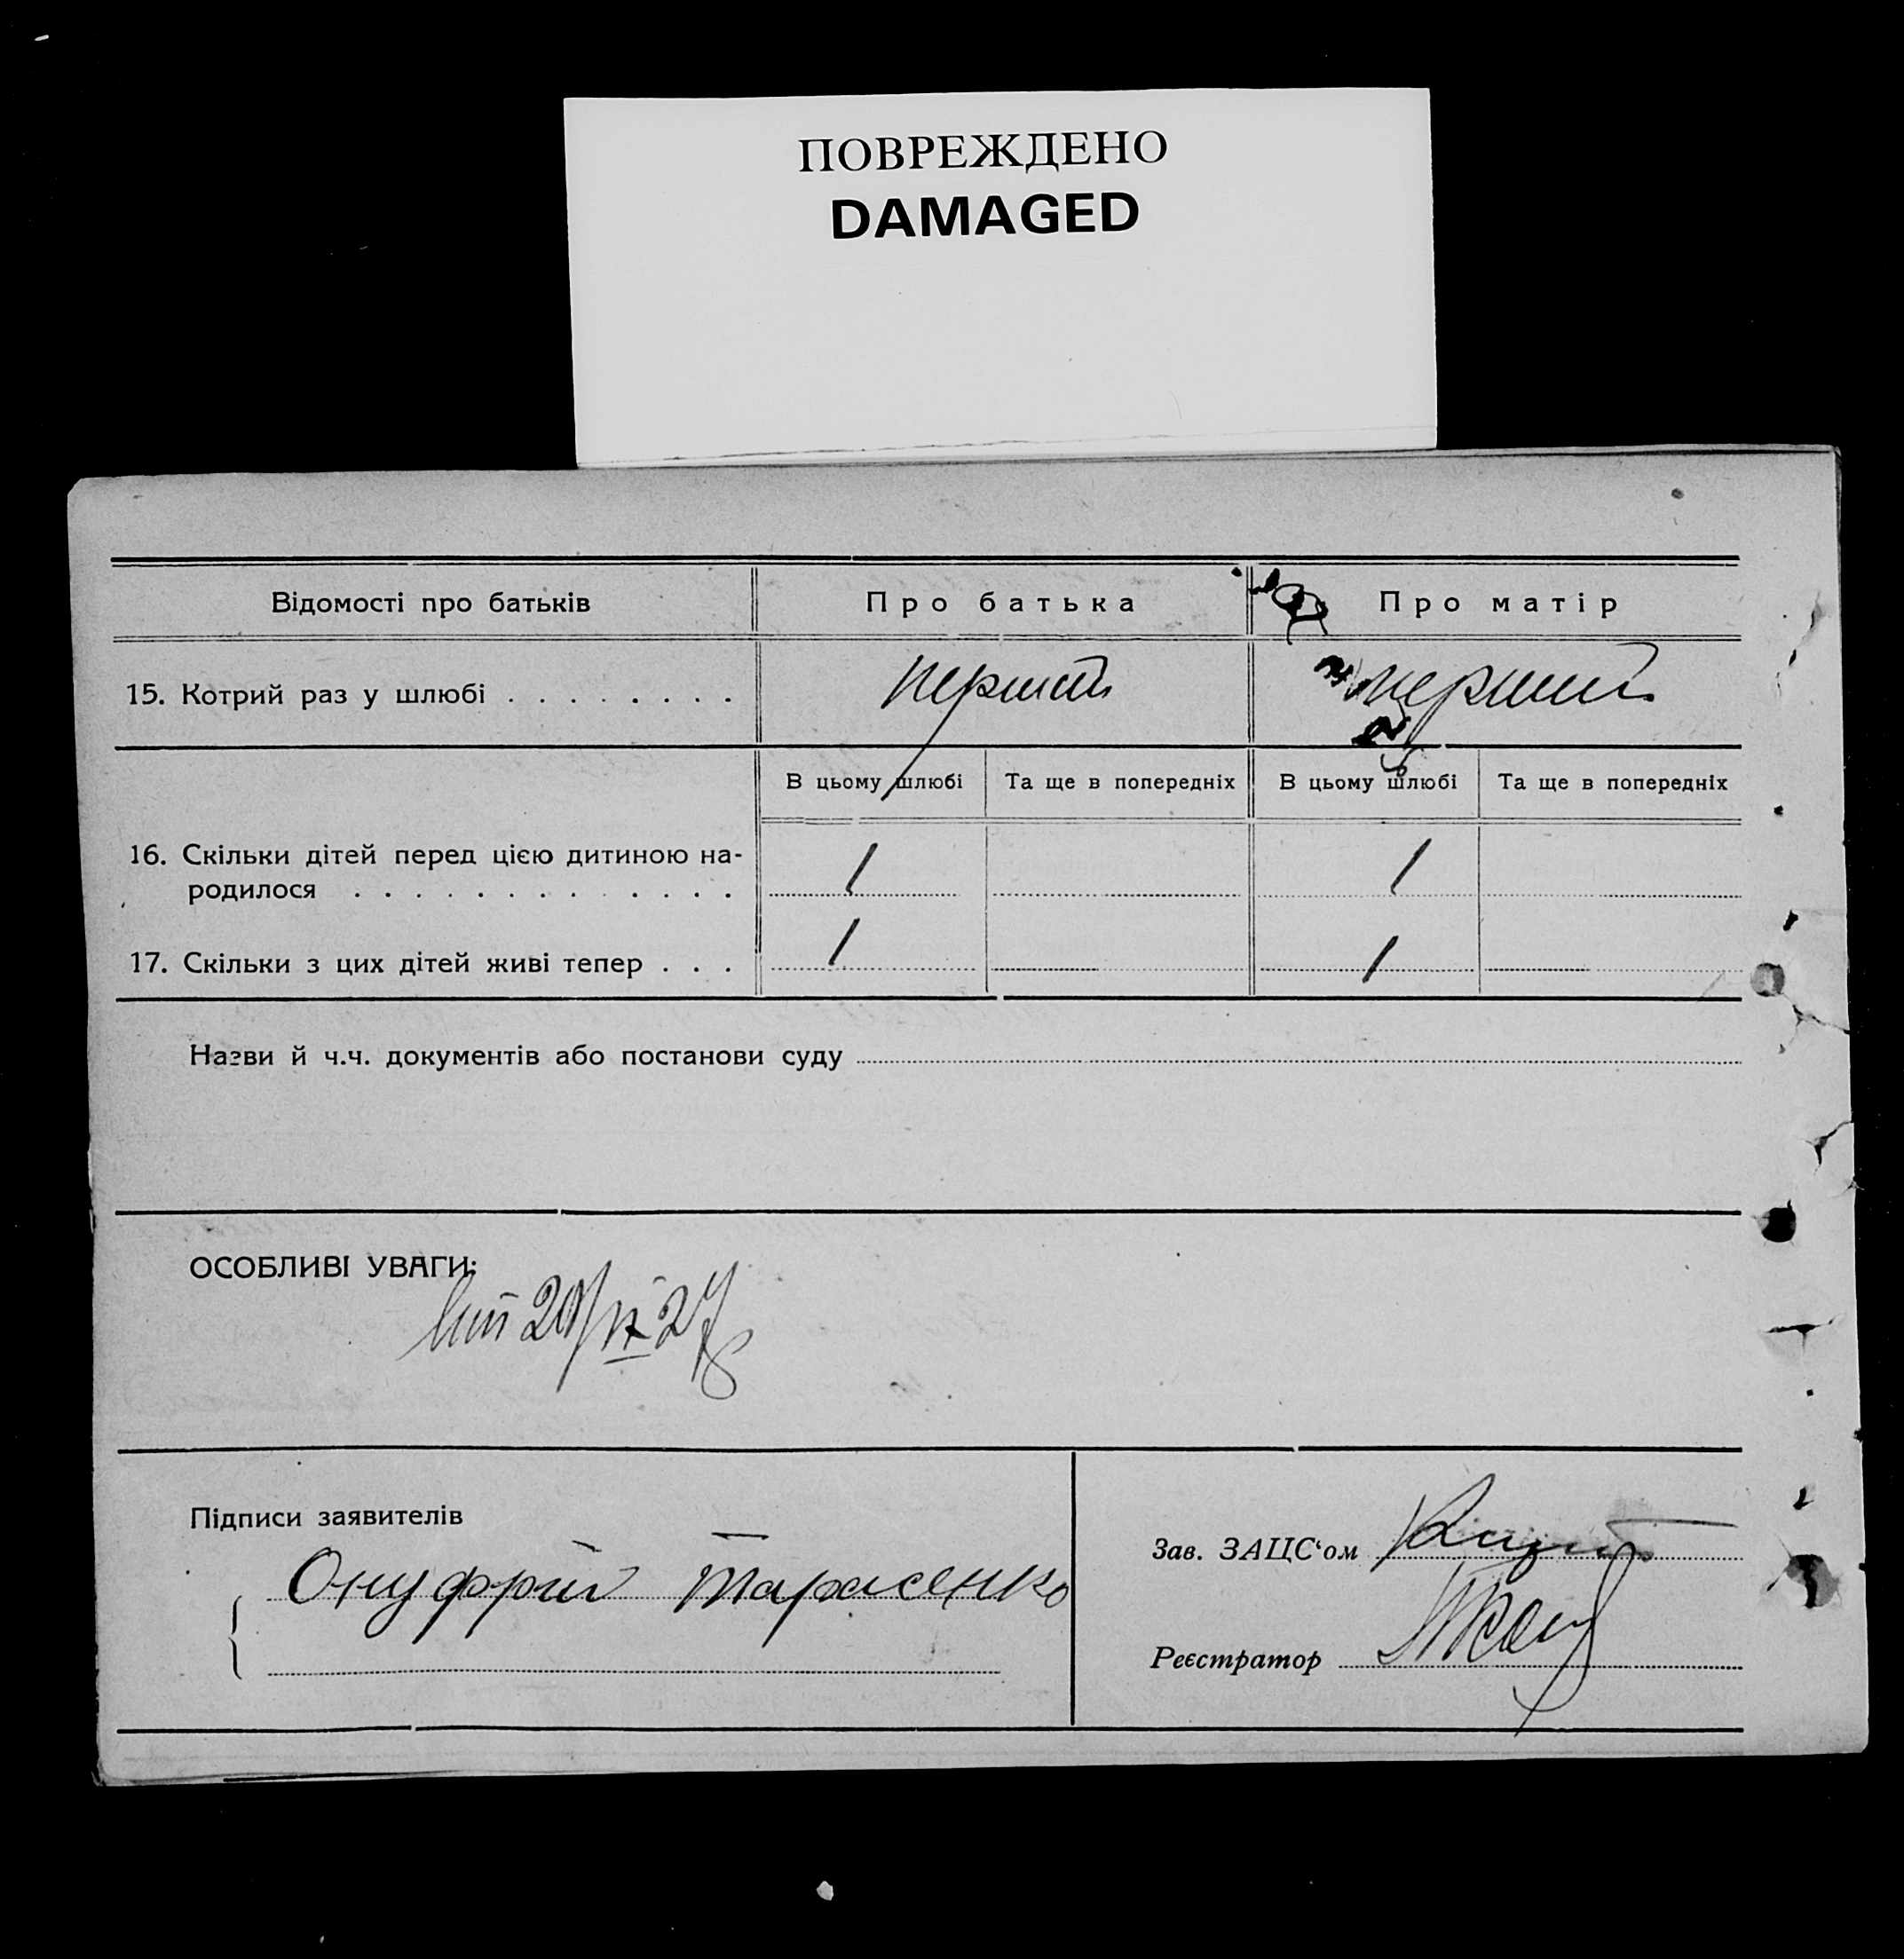 ПОВРЕЖДЕНО
DAMAGED
Відомості про батьків
Про батька
Про матір
15. Котрий раз у шлюбі . . . . . . . .
перший
перший
В цьому шлюбі
Та ще в попередніх
В цьому шлюбі
Та ще в попередніх
16. Скільки дітей перед цією дитиною на-
родилося . . . . . . . . . . . . .
1
1
17. Скільки з цих дітей живі тепер . . .
1
1
Назви й ч.ч. документів або постанови суду
ОСОБЛИВІ УВАГИ:
Підписи заявителів
Онуфрій Тарасенко
Зав. ЗАЦС‘ом
Реєстратор